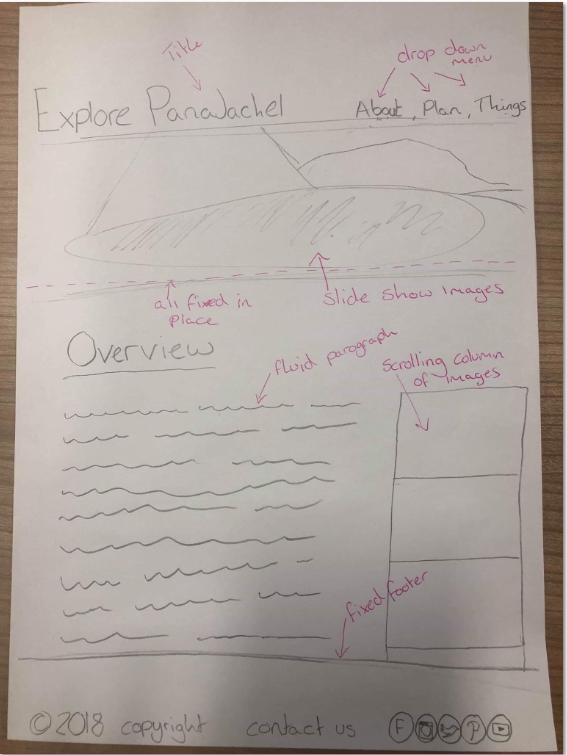 Title
drop down
menu
Explore Panajachel
About, Plan, Things
all fixed in
Place
Slide Show Images
Overview
fluid paragraph
Scrolling column
of images
fixed footer
©2018 copyright contact us F P